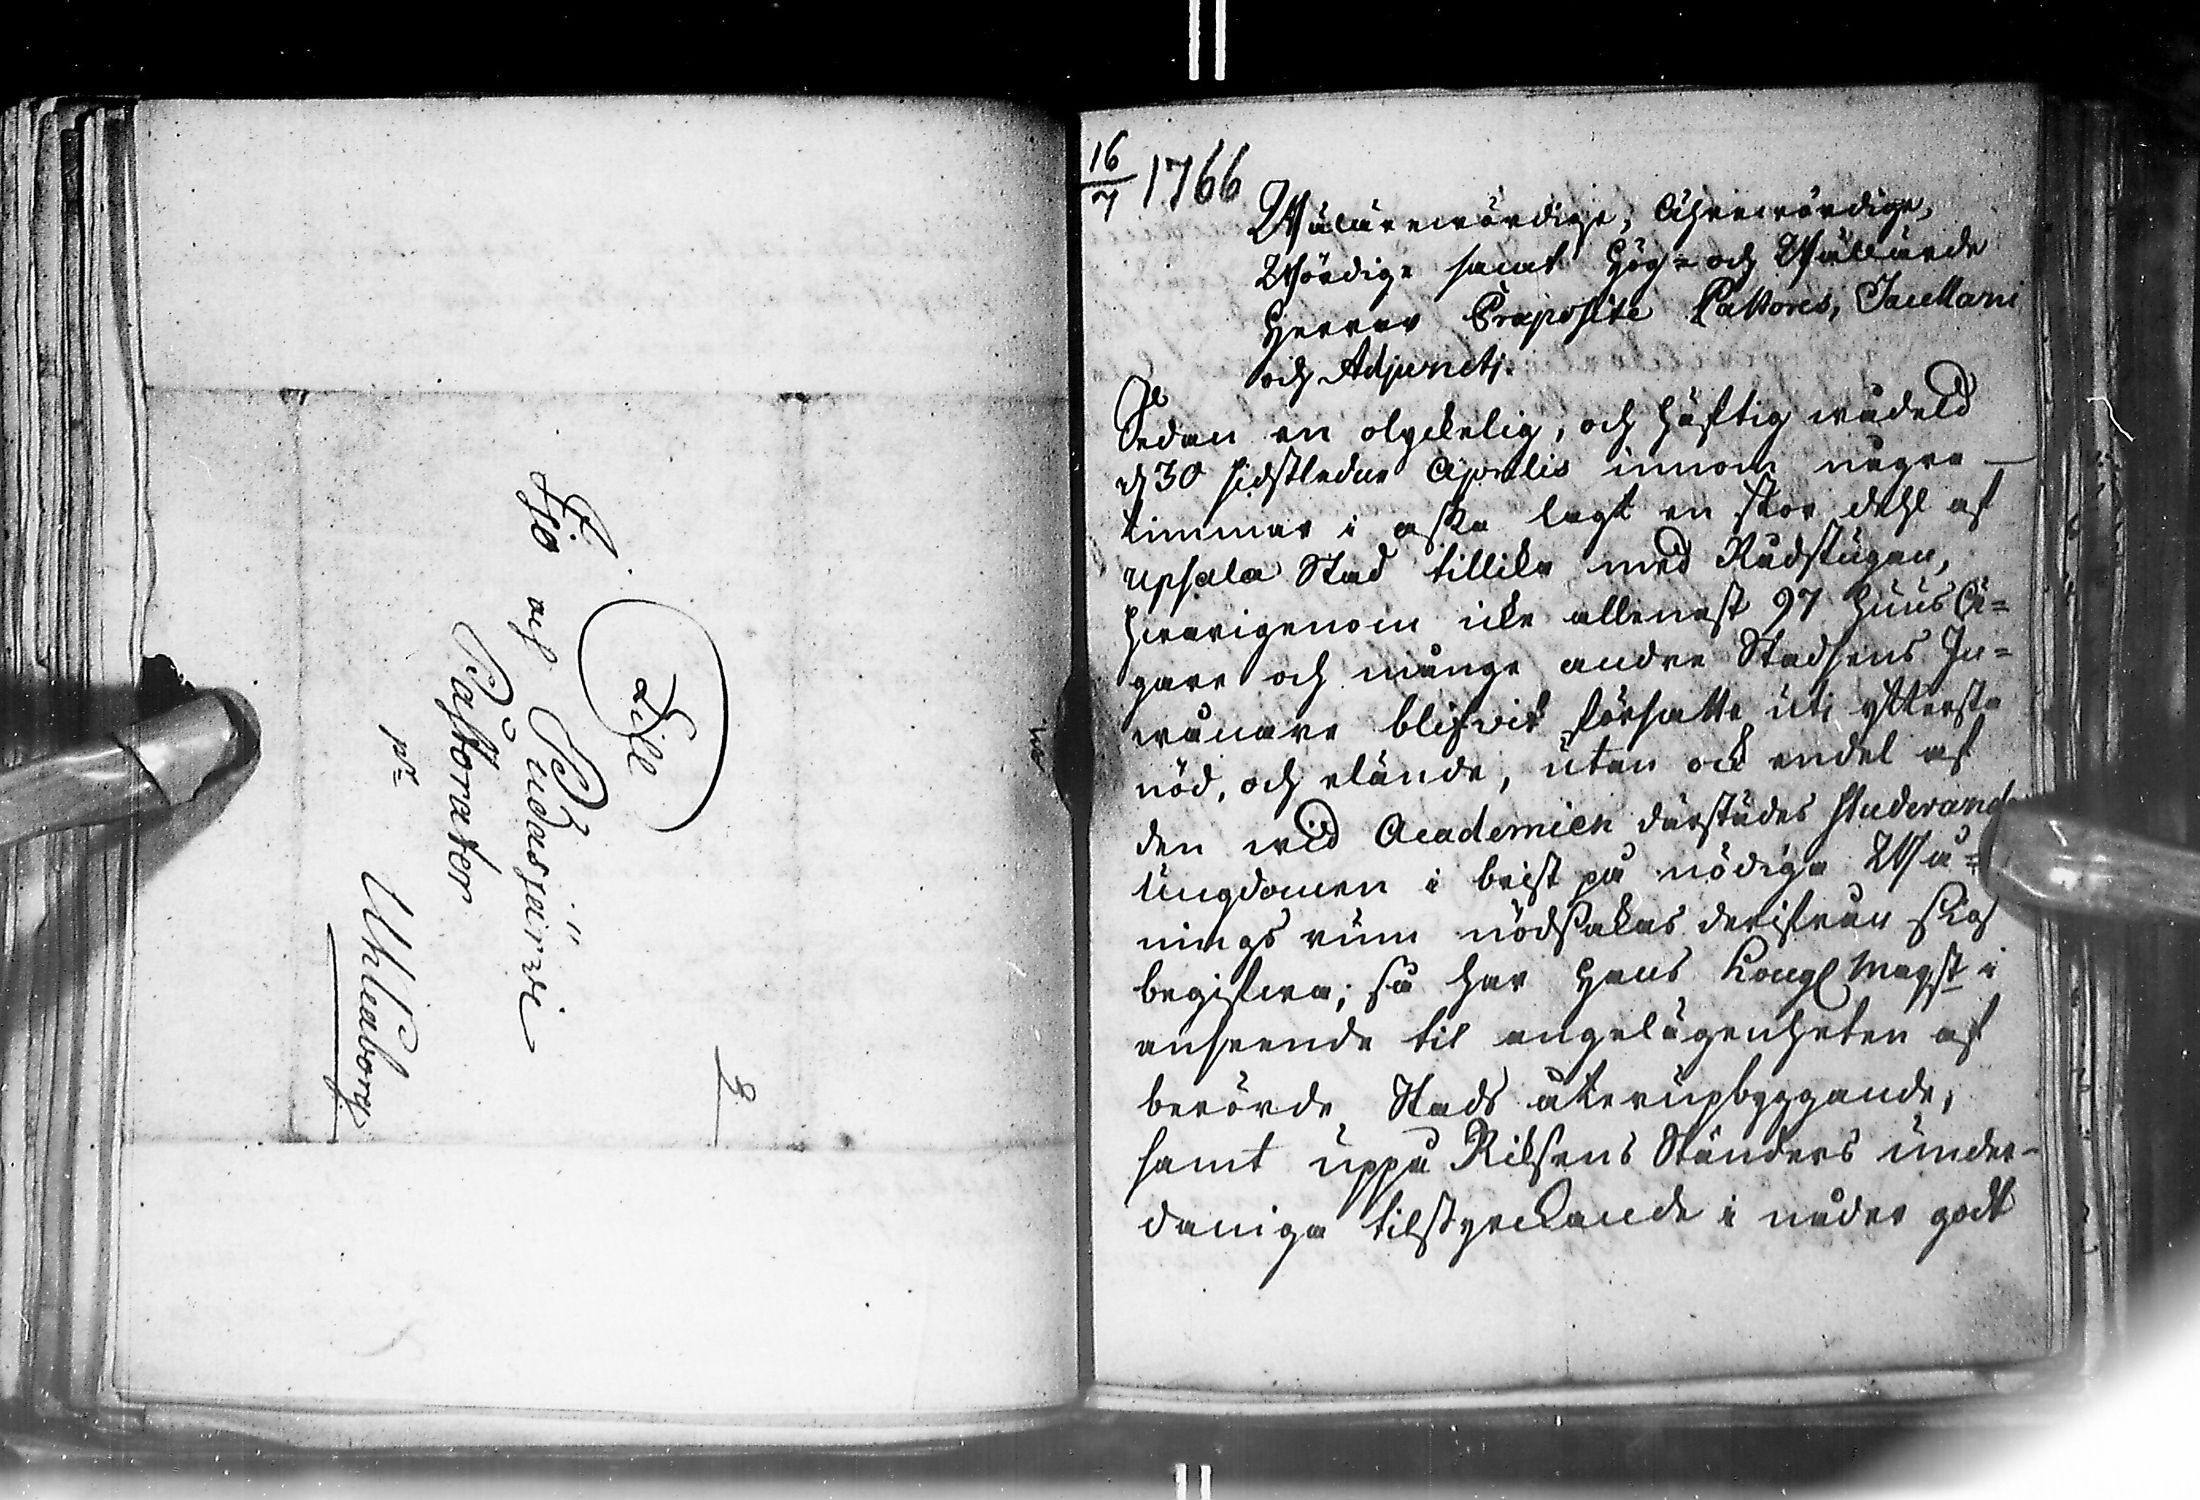 Till
Ijo af Pudasjärwi
Pastorater
pr
Uhleaborg
2
16/7 1766
Wälärewördige, Ährewördige,
Wördige samt Hög- och Wällärde
Herrar Præposite Pastores, Sacellani
och Adjuncti.
Sedan en olyckelig, och häftig wådeld
d 30 sidstledne Aprilis innom någre
timmar i aska lagt en stor dehl af
Upsala Stad tillika med Rådstugan,
hwarigenom icke allenast 97 huus Ä-
gare och många andre Stadsens In-
wånare blifwit försatte uti yttersta
nöd, och elände, utan ock endel af
den wid Academien därstädes studerande
Ungdomen i brist på nödiga Wå-
nings rum nödsakas derifrån sig
begifwa; så har Hans Kongl Mayst i
anseende til angelägenheten af
berörde Stads återupbyggande,
samt uppå Riksens Ständers under-
daniga tilstyrckande i nåder godt